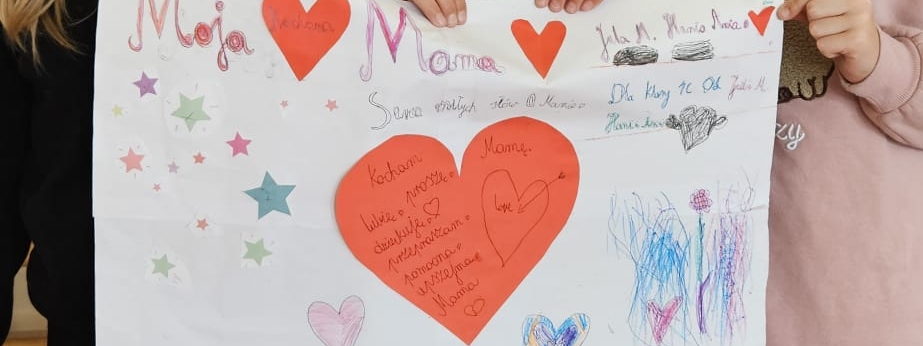 Moja Kochana Mama
Jula M. Hania Ania
Dla klasy 1c Od Jula M.
Hania Ania
Serce słów o Mamie
Kocham Mamę.
proszę
lubię
dziękuję
przepraszam
pomocna
upszejma
Mama
love
zy